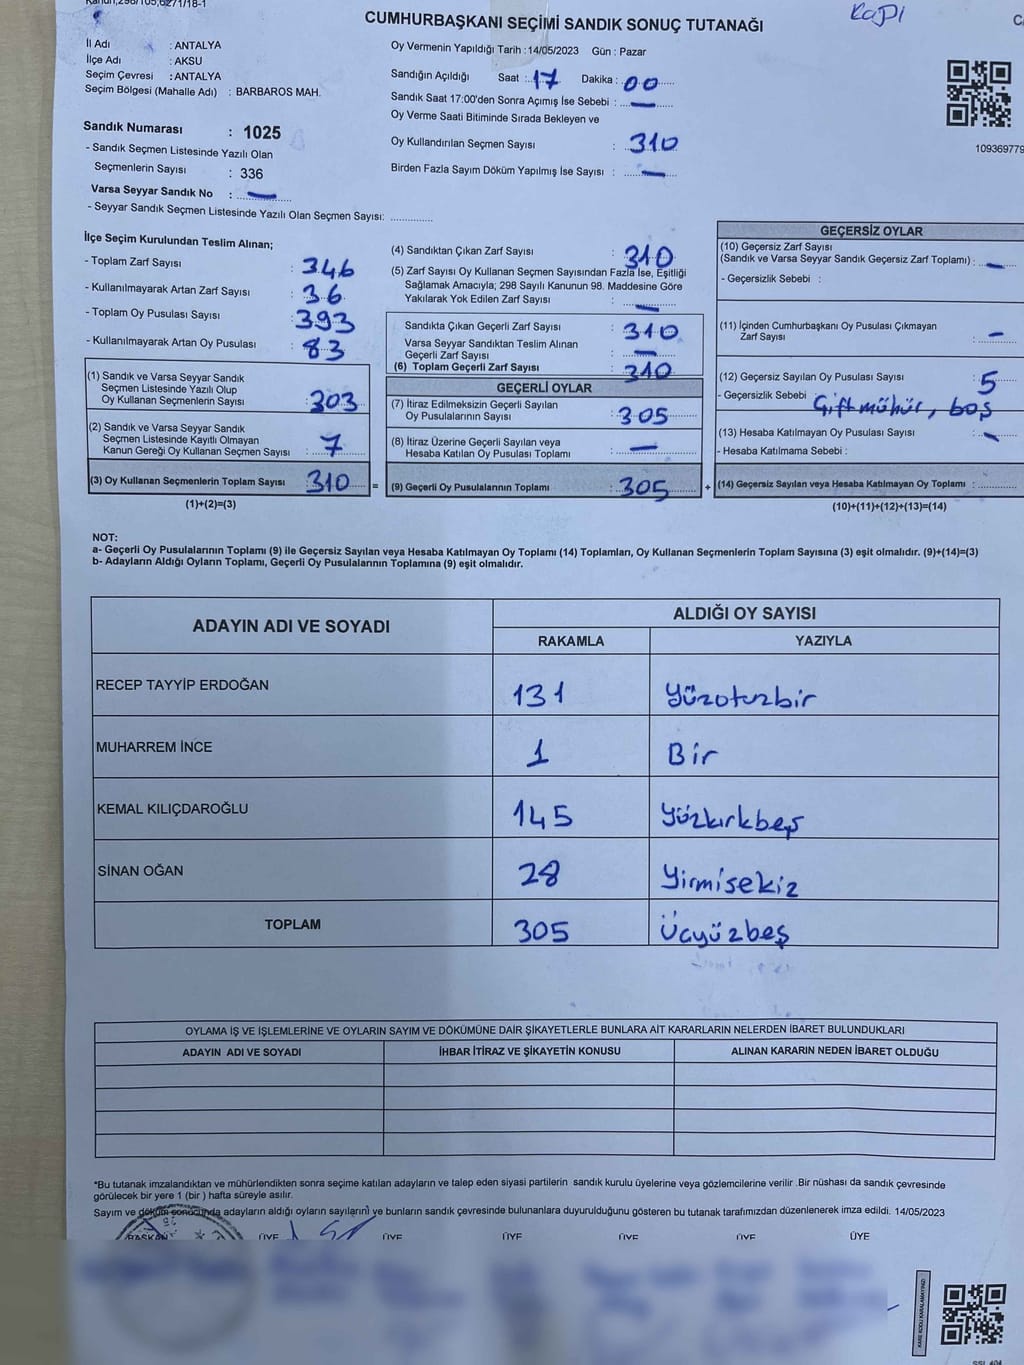 Kanun,298/105,6271/18-1
CUMHURBAŞKANI SEÇİMİ SANDIK SONUÇ TUTANAĞI
KAPI
İl Adı : ANTALYA
İlçe Adı : AKSU
Seçim Çevresi : ANTALYA
Seçim Bölgesi (Mahalle Adı) : BARBAROS MAH.
Sandık Numarası : 1025
- Sandık Seçmen Listesinde Yazılı Olan
Seçmenlerin Sayısı : 336
Varsa Seyyar Sandık No : —
- Seyyar Sandık Seçmen Listesinde Yazılı Olan Seçmen Sayısı: ..............
Oy Vermenin Yapıldığı Tarih : 14/05/2023 Gün : Pazar
Sandığın Açıldığı Saat : 17 Dakika : 00
Sandık Saat 17:00'den Sonra Açımış İse Sebebi : —
Oy Verme Saati Bitiminde Sırada Bekleyen ve
Oy Kullandırılan Seçmen Sayısı : 310
Birden Fazla Sayım Döküm Yapılmış İse Sayısı : —
109369779
İlçe Seçim Kurulundan Teslim Alınan;
- Toplam Zarf Sayısı : 346
- Kullanılmayarak Artan Zarf Sayısı : 36
- Toplam Oy Pusulası Sayısı : 393
- Kullanılmayarak Artan Oy Pusulası : 83
(1) Sandık ve Varsa Seyyar Sandık
Seçmen Listesinde Yazılı Olup
Oy Kullanan Seçmenlerin Sayısı : 303
(2) Sandık ve Varsa Seyyar Sandık
Seçmen Listesinde Kayıtlı Olmayan
Kanun Gereği Oy Kullanan Seçmen Sayısı : 7
(3) Oy Kullanan Seçmenlerin Toplam Sayısı : 310 =
(1)+(2)=(3)
(4) Sandıktan Çıkan Zarf Sayısı : 310
(5) Zarf Sayısı Oy Kullanan Seçmen Sayısından Fazla İse, Eşitliği
Sağlamak Amacıyla; 298 Sayılı Kanunun 98. Maddesine Göre
Yakılarak Yok Edilen Zarf Sayısı : —
Sandıkta Çıkan Geçerli Zarf Sayısı : 310
Varsa Seyyar Sandıktan Teslim Alınan
Geçerli Zarf Sayısı : —
(6) Toplam Geçerli Zarf Sayısı : 310
GEÇERLİ OYLAR
(7) İtiraz Edilmeksizin Geçerli Sayılan
Oy Pusulalarının Sayısı : 305
(8) İtiraz Üzerine Geçerli Sayılan veya
Hesaba Katılan Oy Pusulası Toplamı : —
(9) Geçerli Oy Pusulalarının Toplamı : 305 +
GEÇERSİZ OYLAR
(10) Geçersiz Zarf Sayısı
(Sandık ve Varsa Seyyar Sandık Geçersiz Zarf Toplamı) : —
- Geçersizlik Sebebi :
(11) İçinden Cumhurbaşkanı Oy Pusulası Çıkmayan
Zarf Sayısı : —
(12) Geçersiz Sayılan Oy Pusulası Sayısı : 5
- Geçersizlik Sebebi Çift mühür, boş
(13) Hesaba Katılmayan Oy Pusulası Sayısı : —
- Hesaba Katılmama Sebebi :
(14) Geçersiz Sayılan veya Hesaba Katılmayan Oy Toplamı : ............
(10)+(11)+(12)+(13)=(14)
NOT:
a- Geçerli Oy Pusulalarının Toplamı (9) ile Geçersiz Sayılan veya Hesaba Katılmayan Oy Toplamı (14) Toplamları, Oy Kullanan Seçmenlerin Toplam Sayısına (3) eşit olmalıdır. (9)+(14)=(3)
b- Adayların Aldığı Oyların Toplamı, Geçerli Oy Pusulalarının Toplamına (9) eşit olmalıdır.
ADAYIN ADI VE SOYADI ALDIĞI OY SAYISI
RAKAMLA YAZIYLA
RECEP TAYYİP ERDOĞAN 131 Yüzotuzbir
MUHARREM İNCE 1 Bir
KEMAL KILIÇDAROĞLU 145 Yüzkırkbeş
SİNAN OĞAN 28 Yirmisekiz
TOPLAM 305 Üçyüzbeş
OYLAMA İŞ VE İŞLEMLERİNE VE OYLARIN SAYIM VE DÖKÜMÜNE DAİR ŞİKAYETLERLE BUNLARA AİT KARARLARIN NELERDEN İBARET BULUNDUKLARI
ADAYIN ADI VE SOYADI İHBAR İTİRAZ VE ŞİKAYETİN KONUSU ALINAN KARARIN NEDEN İBARET OLDUĞU
*Bu tutanak imzalandıktan ve mühürlendikten sonra seçime katılan adayların ve talep eden siyasi partilerin sandık kurulu üyelerine veya gözlemcilerine verilir .Bir nüshası da sandık çevresinde
görülecek bir yere 1 (bir ) hafta süreyle asılır.
Sayım ve döküm sonucunda adayların aldığı oyların sayılarını ve bunların sandık çevresinde bulunanlara duyurulduğunu gösteren bu tutanak tarafımızdan düzenlenerek imza edildi. 14/05/2023
BAŞKAN ÜYE ÜYE ÜYE ÜYE ÜYE ÜYE
KARE KODU KARALAMAYINIZ!